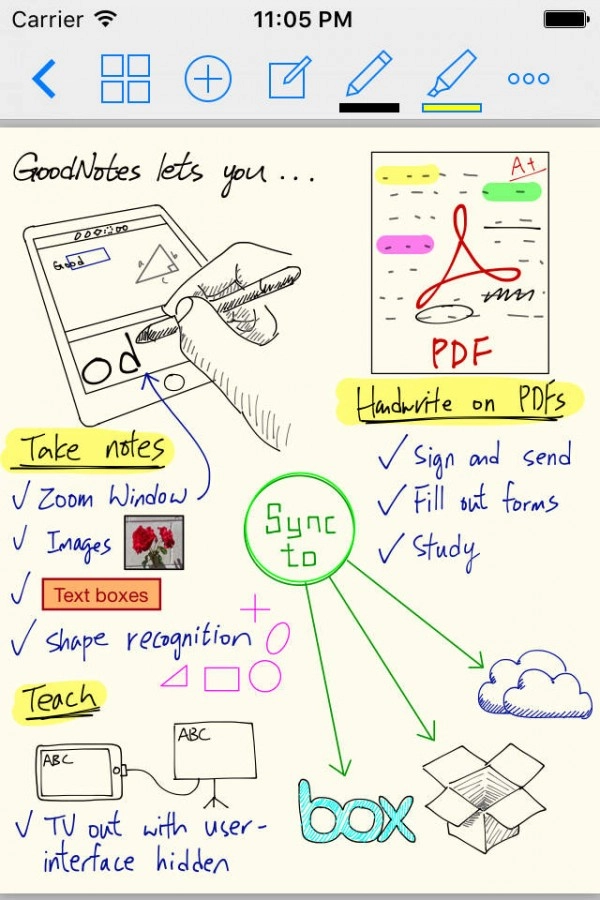 Carrier
11:05 PM
GoodNotes lets you ...
Good
od
A+
PDF
Handwrite on PDFs
Sign and send
Fill out forms
Study
Take notes
Zoom Window
Images
Text boxes
shape recognition
Sync
to
Teach
ABC
ABC
TV out with user-
interface hidden
box